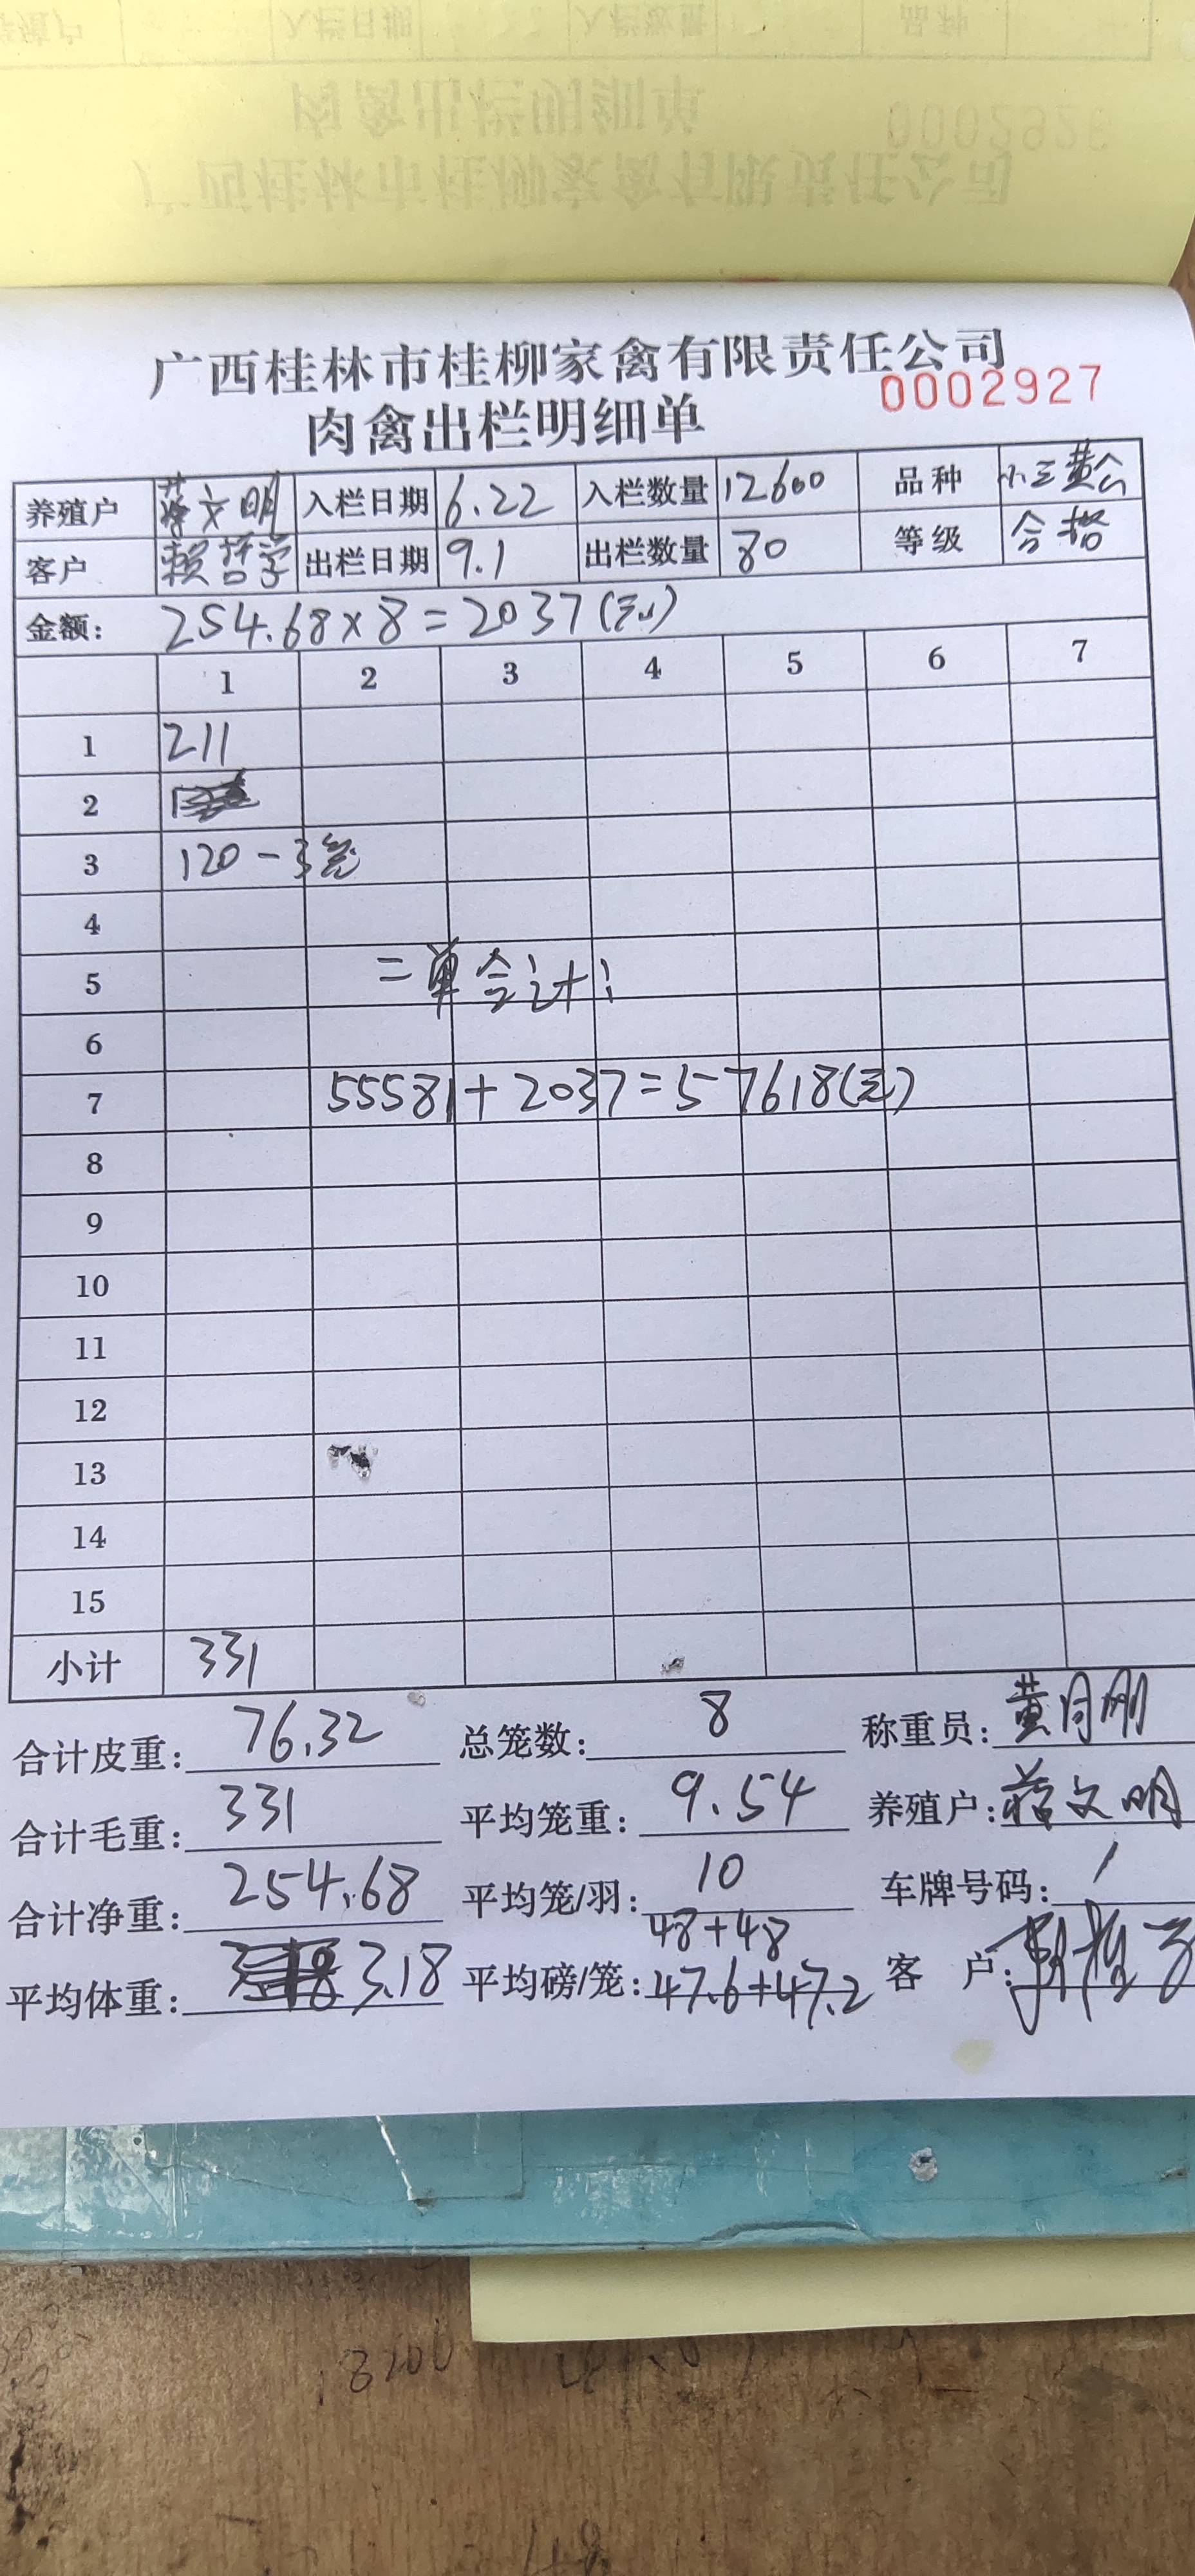 广西桂林市桂柳家禽有限责任公司
肉禽出栏明细单 0002927
养殖户 蒋文明 入栏日期 6.22 入栏数量 12600 品种 小三黄公
客户 赖哲学 出栏日期 9.1 出栏数量 80 等级 合格
金额: 254.68×8=2037(元)
1 2 3 4 5 6 7
1 211
2
3 120-3笼
4
5 二单合计:
6
7 55581+2037=57618(元)
8
9
10
11
12
13
14
15
小计 331
合计皮重: 76.32 总笼数: 8 称重员: 黄月刚
合计毛重: 331 平均笼重: 9.54 养殖户: 蒋文明
合计净重: 254.68 平均笼/羽: 10 车牌号码: /
48+48
平均体重: 3.18 平均磅/笼: 47.6+47.2 客户: